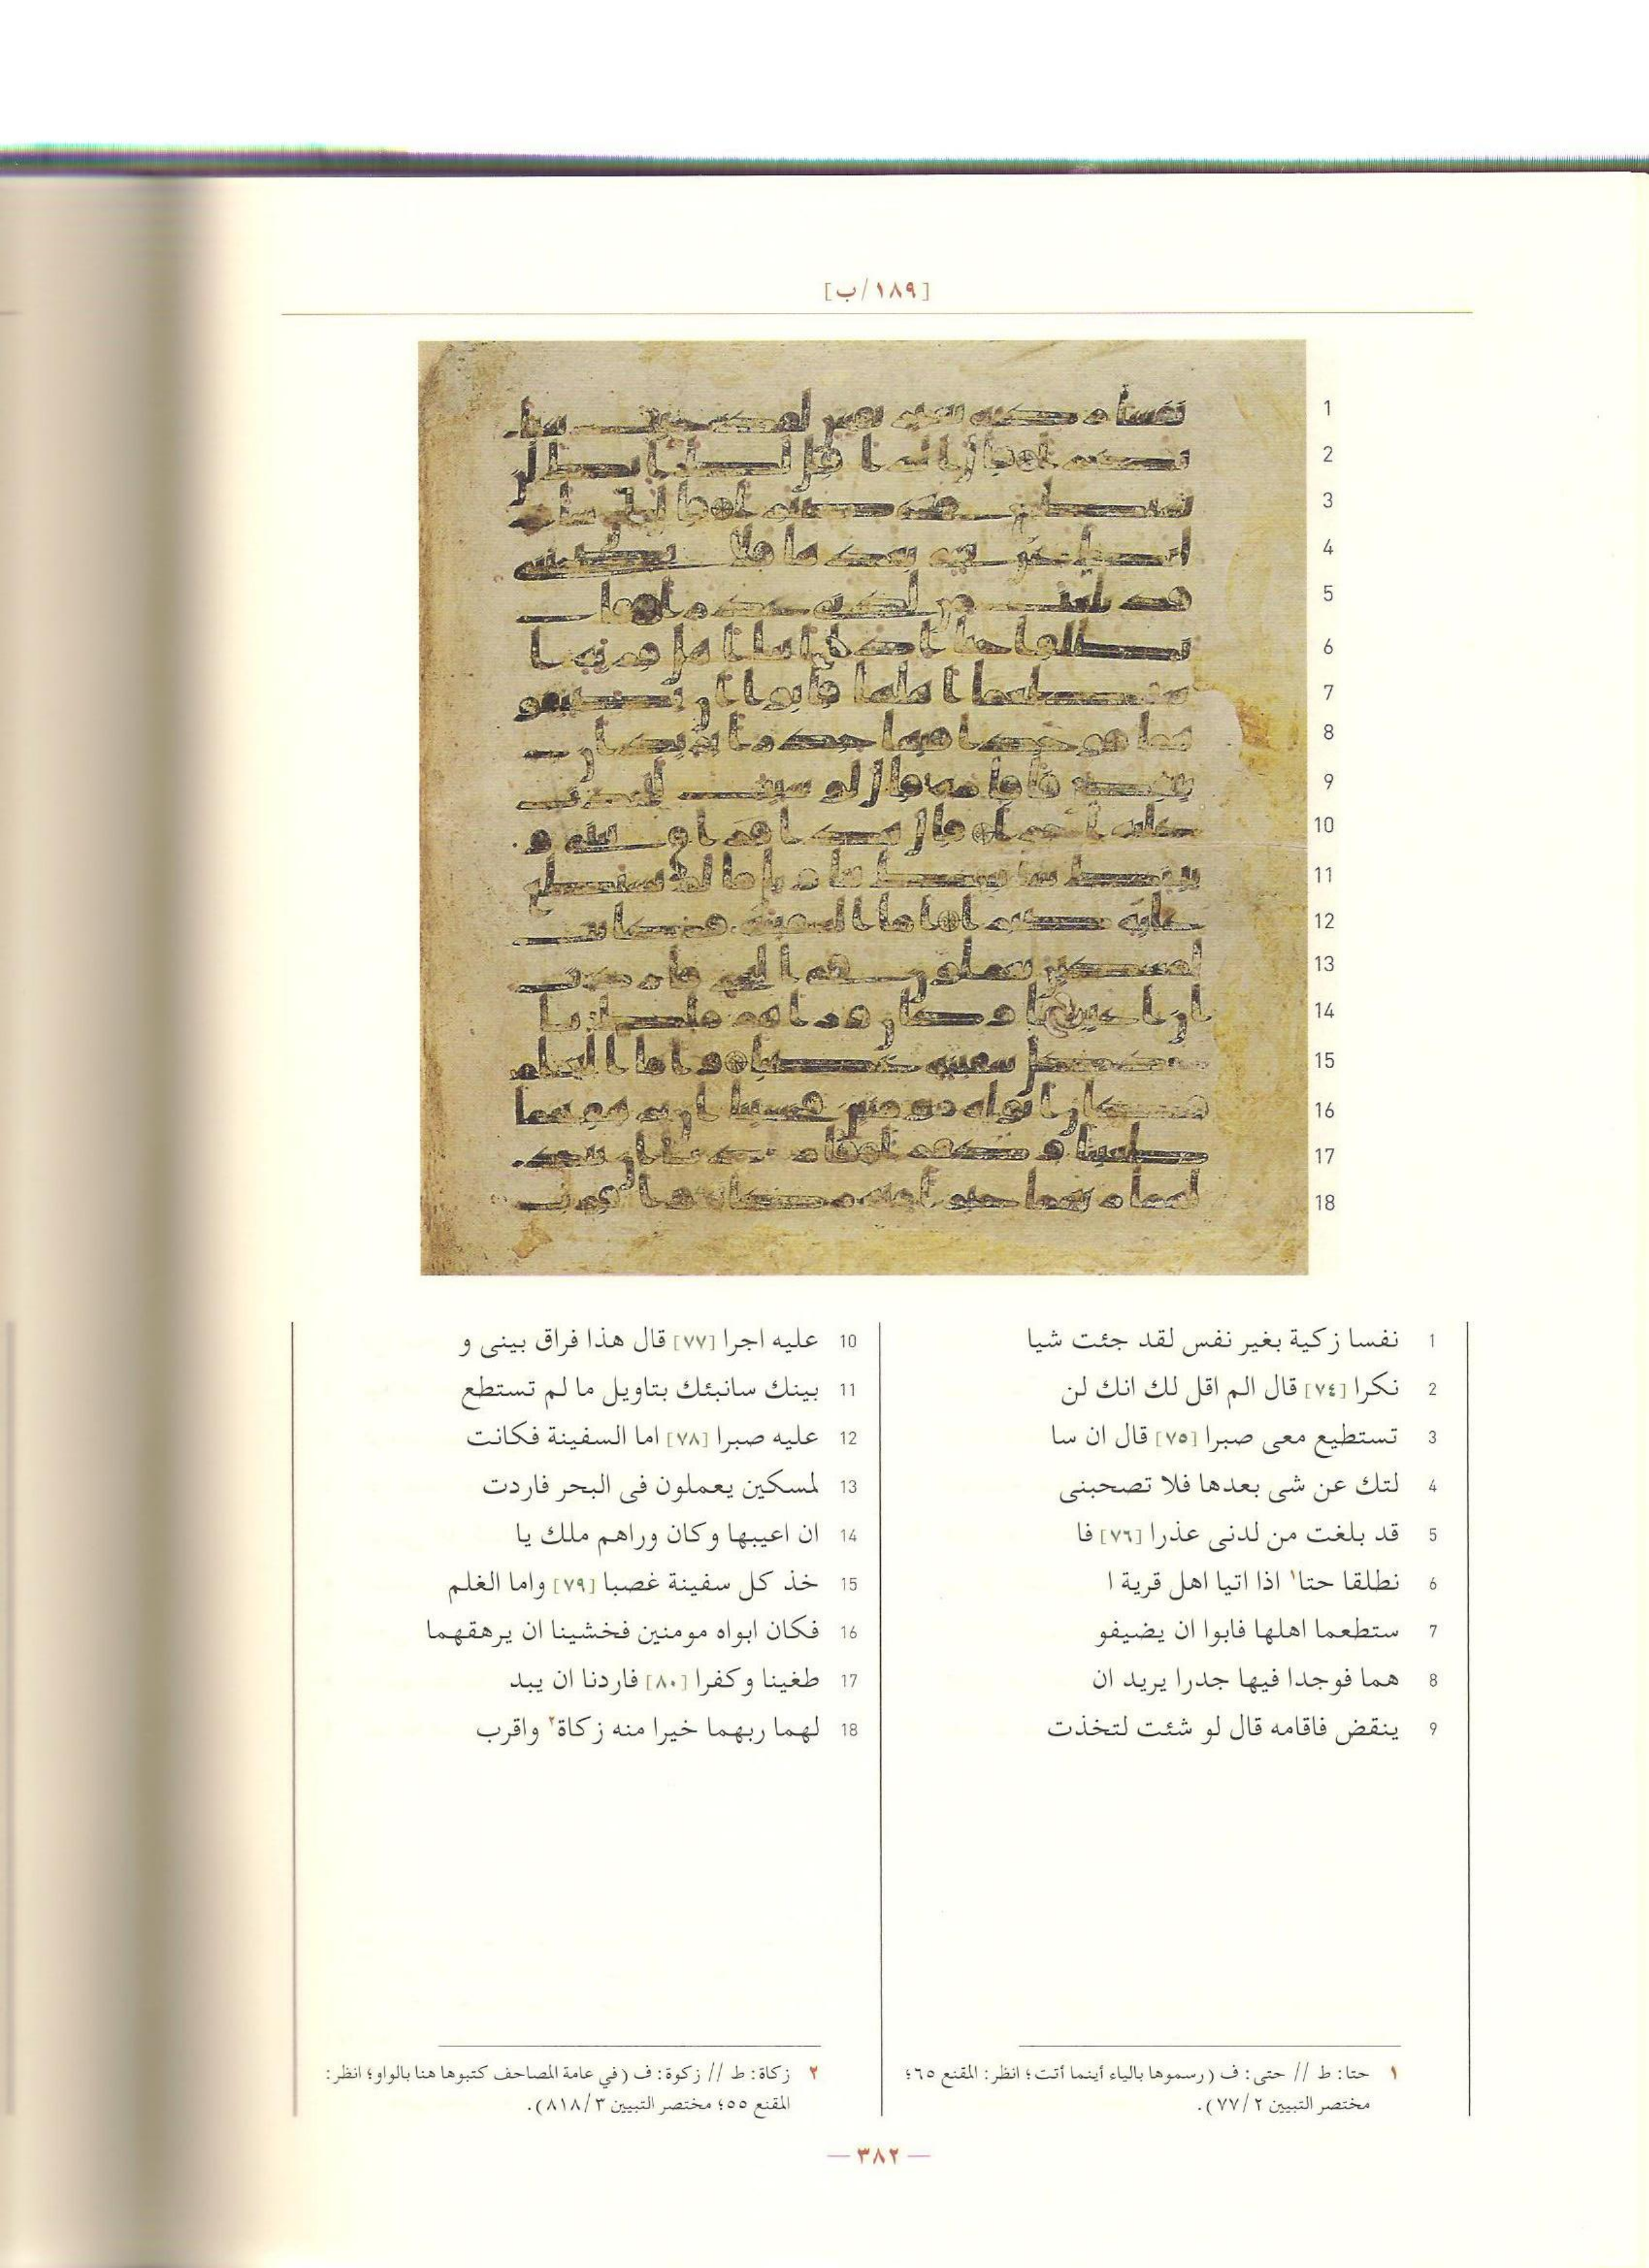 [١٨٩/ب]
1
2
3
4
5
6
7
8
9
10
11
12
13
14
15
16
17
18
1 نفسا زكية بغير نفس لقد جئت شيا
2 نكرا [٧٤] قال الم اقل لك انك لن
3 تستطيع معى صبرا [٧٥] قال ان سا
4 لتك عن شى بعدها فلا تصحبنى
5 قد بلغت من لدنى عذرا [٧٦] فا
6 نطلقا حتا١ اذا اتيا اهل قرية ا
7 ستطعما اهلها فابوا ان يضيفو
8 هما فوجدا فيها جدرا يريد ان
9 ينقض فاقامه قال لو شئت لتخذت
10 عليه اجرا [٧٧] قال هذا فراق بينى و
11 بينك سانبئك بتاويل ما لم تستطع
12 عليه صبرا [٧٨] اما السفينة فكانت
13 لمسكين يعملون فى البحر فاردت
14 ان اعيبها وكان وراهم ملك يا
15 خذ كل سفينة غصبا [٧٩] واما الغلم
16 فكان ابواه مومنين فخشينا ان يرهقهما
17 طغينا وكفرا [٨٠] فاردنا ان يبد
18 لهما ربهما خيرا منه زكاة٢ واقرب
١ حتا: ط // حتى: ف (رسموها بالياء أينما أتت؛ انظر: المقنع ٦٥؛
مختصر التبيين ٧٧/٢).
٢ زكاة: ط // زكوة: ف (في عامة المصاحف كتبوها هنا بالواو؛ انظر:
المقنع ٥٥؛ مختصر التبيين ٨١٨/٣).
— ٣٨٢ —